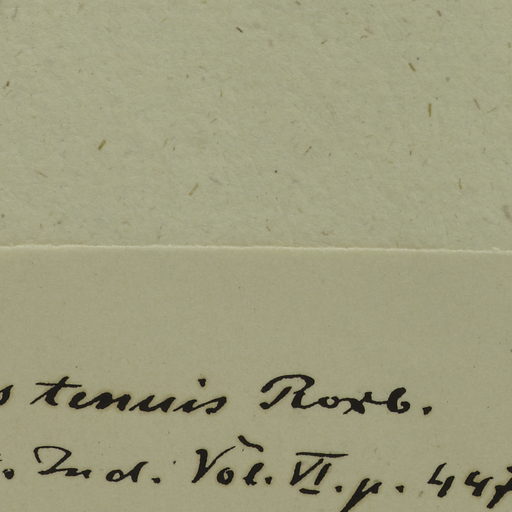 s tenuis Roxb.
. Ind. Vol. VI. p. 447